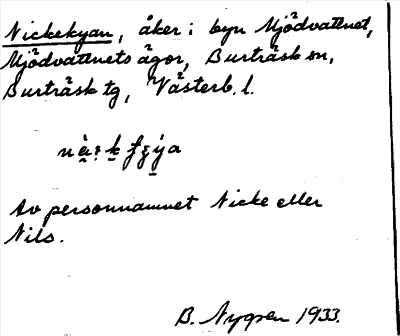 Nickekyan, åker i byn Mjödvattnet,
Mjödvattnets ägor, Burträsk sn,
Burträsk tg, Västerb. l.
Av personnamnet Nicke eller
Nils.
B. Nygren 1933.